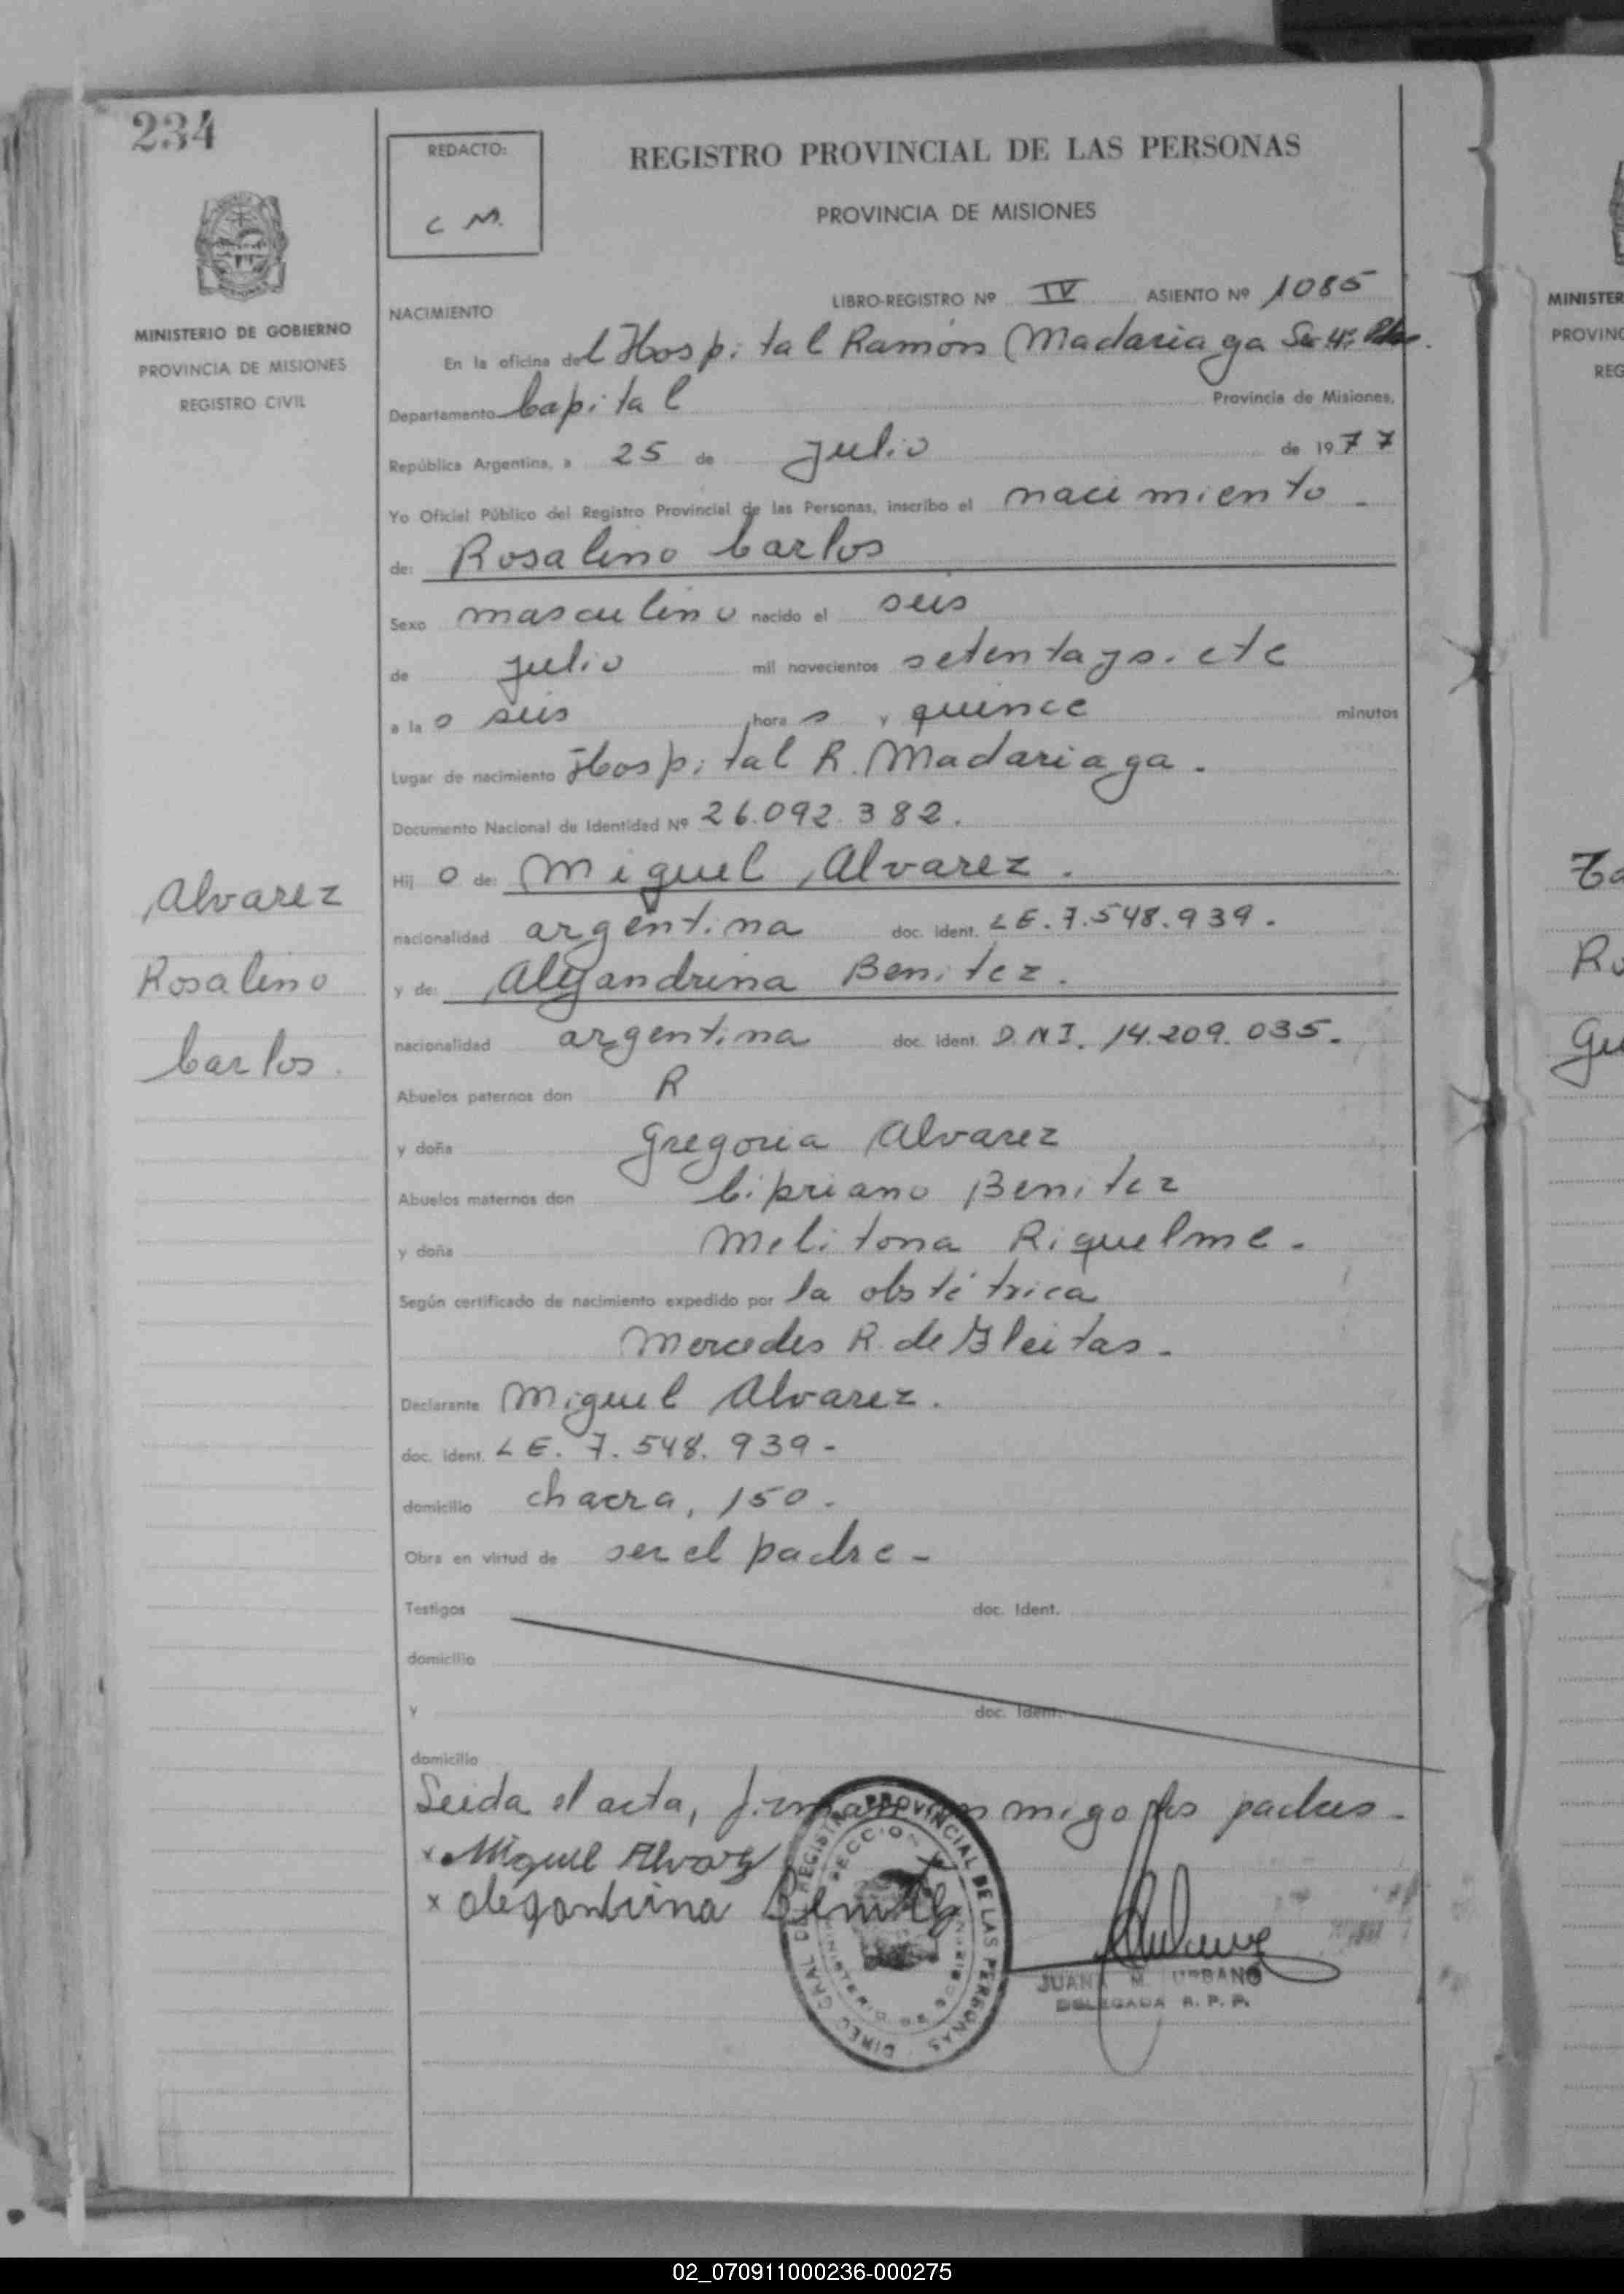 234
REDACTO:
C M.
REGISTRO PROVINCIAL DE LAS PERSONAS
PROVINCIA DE MISIONES
MINISTERIO DE GOBIERNO
PROVINCIA DE MISIONES
REGISTRO CIVIL
LIBRO-REGISTRO Nº IV ASIENTO Nº 1085
NACIMIENTO
En la oficina del Hospital Ramón Madariaga
Departamento Capital Provincia de Misiones,
República Argentina, a 25 de julio de 1977
Yo Oficial Público del Registro Provincial de las Personas, inscribo el nacimiento -
de: Rosalino Carlos
Sexo masculino nacido el seis
de julio mil novecientos setenta y siete
a las seis horas y quince minutos
Lugar de nacimiento Hospital R. Madariaga.
Documento Nacional de Identidad Nº 26.092.382.
Hijo de: Miguel Alvarez.
nacionalidad argentina doc. ident. LE. 7.548.939.
y de: Alejandrina Benitez.
nacionalidad argentina doc. ident. D.N.I. 14.209.035.
Alvarez
Rosalino
Carlos.
Abuelos paternos don R
y doña Gregoria Alvarez
Abuelos maternos don Cipriano Benitez
y doña Melitona Riquelme.
Según certificado de nacimiento expedido por la obstétrica
Mercedes R. de Gleitas.
Declarante Miguel Alvarez.
doc. ident. LE. 7.548.939-
domicilio chacra, 150.
Obra en virtud de ser el padre -
Testigos doc. Ident.
domicilio
y doc. Ident.
domicilio
Leida el acta, firman conmigo los padres.
x Miguel Alvarez
x alegandrina Benitez
DIREC. GRAL DEL REGISTRO PROVINCIAL DE LAS PERSONAS
MINISTERIO DE GOBIERNO
JUANA M. URBANO
DELEGADA R. P. P.
MINISTER
PROVINC
REG
02_070911000236-000275